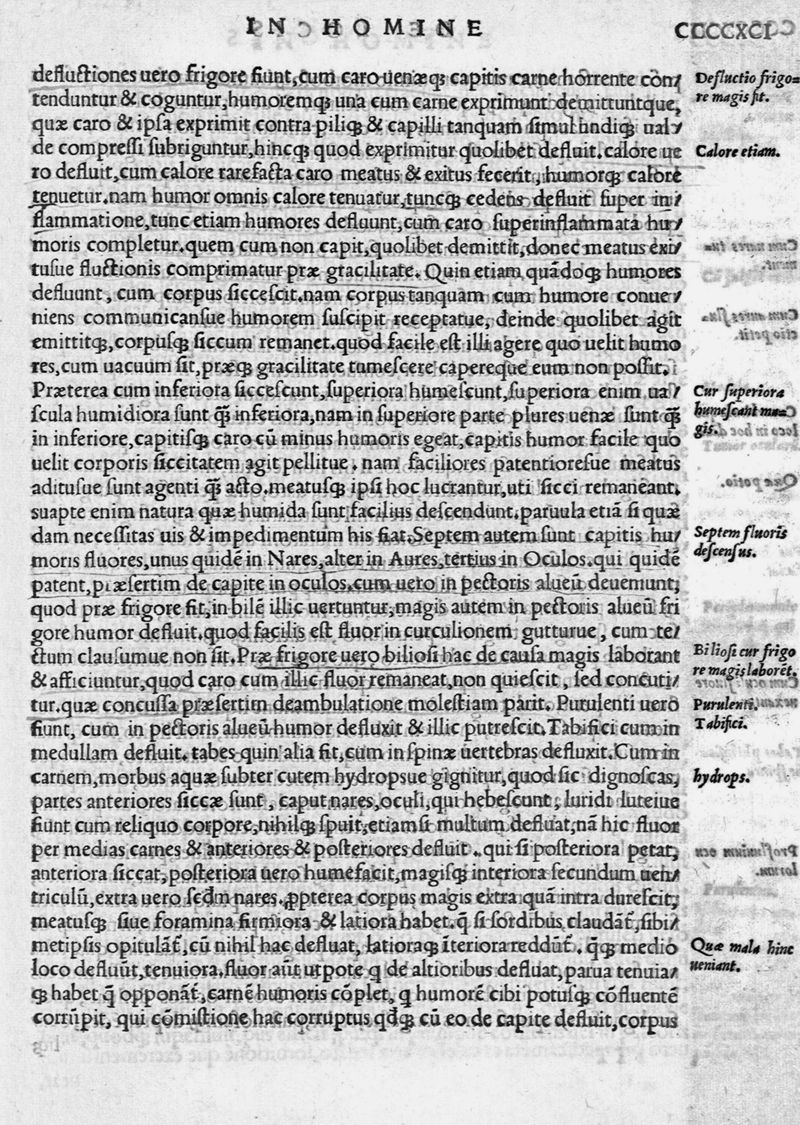 IN HOMINE
CCCCXCI
defluctiones uero frigore fiunt, cum caro uenæq; capitis carne horrente con/
tenduntur & coguntur, humoremq; una cum carne exprimunt demittuntque,
quæ caro & ipsa exprimit contra piliq; & capilli tanquam simul undiq; ual/
de compressi subriguntur, hincq; quod exprimitur quolibet defluit. calore ue
ro defluit, cum calore rarefacta caro meatus & exitus fecerit, humorq; calore
tenuetur. nam humor omnis calore tenuatur, tuncq; cedens defluit super in/
flammatione, tunc etiam humores defluunt, cum caro superinflammata hu/
moris completur. quem cum non capit, quolibet demittit, donec meatus exi/
tusue fluctionis comprimatur præ gracilitate. Quin etiam quãdoq; humores
defluunt, cum corpus siccescit. nam corpus tanquam cum humore conue/
niens communicansue humorem suscipit receptatue, deinde quolibet agit
emittitq;, corpusq; siccum remanet. quod facile est illi agere quo uelit humo
res, cum uacuum sit, præq; gracilitate tumescere capereque eum non possit.
Præterea cum inferiora siccescunt, superiora humescunt, superiora enim ua/
scula humidiora sunt q̃ inferiora, nam in superiore parte plures uenæ sunt q̃
in inferiore, capitisq; caro cũ minus humoris egeat, capitis humor facile quo
uelit corporis siccitatem agit pellitue. nam faciliores patentioresue meatus
aditusue sunt agenti q̃ acto. meatusq; ipsi hoc lucrantur, uti sicci remaneant.
suapte enim natura quæ humida sunt facilius descendunt, paruula etiã si quæ
dam necessitas uis & impedimentum his fiat. Septem autem sunt capitis hu/
moris fluores, unus quidẽ in Nares, alter in Aures, tertius in Oculos. qui quidẽ
patent, præsertim de capite in oculos. cum uero in pectoris alueũ deuemunt;
quod præ frigore fit, in bilẽ illic uertuntur, magis autem in pectoris alueũ fri
gore humor defluit, quod facilis est fluor in curculionem gutturue, cum te/
ctum clausumue non sit. Præ frigore uero biliosi hac de causa magis laborant
& afficiuntur, quod caro cum illic fluor remaneat, non quiescit, sed concuti/
tur. quæ concussa præsertim deambulatione molestiam parit. Purulenti uero
fiunt, cum in pectoris alueũ humor defluxit & illic putrescit. Tabifici cum in
medullam defluit. tabes quin alia fit, cum in spinæ uertebras defluxit. Cum in
carnem, morbus aquæ subter cutem hydropsue gignitur, quod sic dignoscas,
partes anteriores siccæ sunt, caput nares, oculi, qui hebescunt, luridi luteiue
fiunt cum reliquo corpore, nihilq; spuit, etiamsi multum defluat, nã hic fluor
per medias carnes & anteriores & posteriores defluit. qui si posteriora petat,
anteriora siccat, posteriora uero humefacit, magisq; interiora secundum uen/
triculũ, extra uero secdm nares. ppterea corpus magis extra quã intra durescit,
meatusq; siue foramina firmiora & latiora habet. q̃ si sordibus claudãt̃, sibi/
metipsis opitulãt̃, cũ nihil hac defluat, latioraq; ĩteriora reddũt̃. q̃q; medio
loco defluũt, tenuiora. fluor aũt utpote q de altioribus defluat, parua tenuia/
q; habet q̃ opponãt̃, carnẽ humoris cõplet, q humorẽ cibi potusq; cõfluentẽ
corrũpit, qui cõmistione hac corruptus qdq; cũ eo de capite defluit, corpus
Defluctio frigo=
re magis fit.
Calore etiam.
Cur superiora
humescant ma=
gis.
Septem fluoris
descensus.
Biliosi cur frigo
re magis laborẽt.
Purulenti.
Tabifici.
hydrops.
Quæ mala hinc
ueniant.